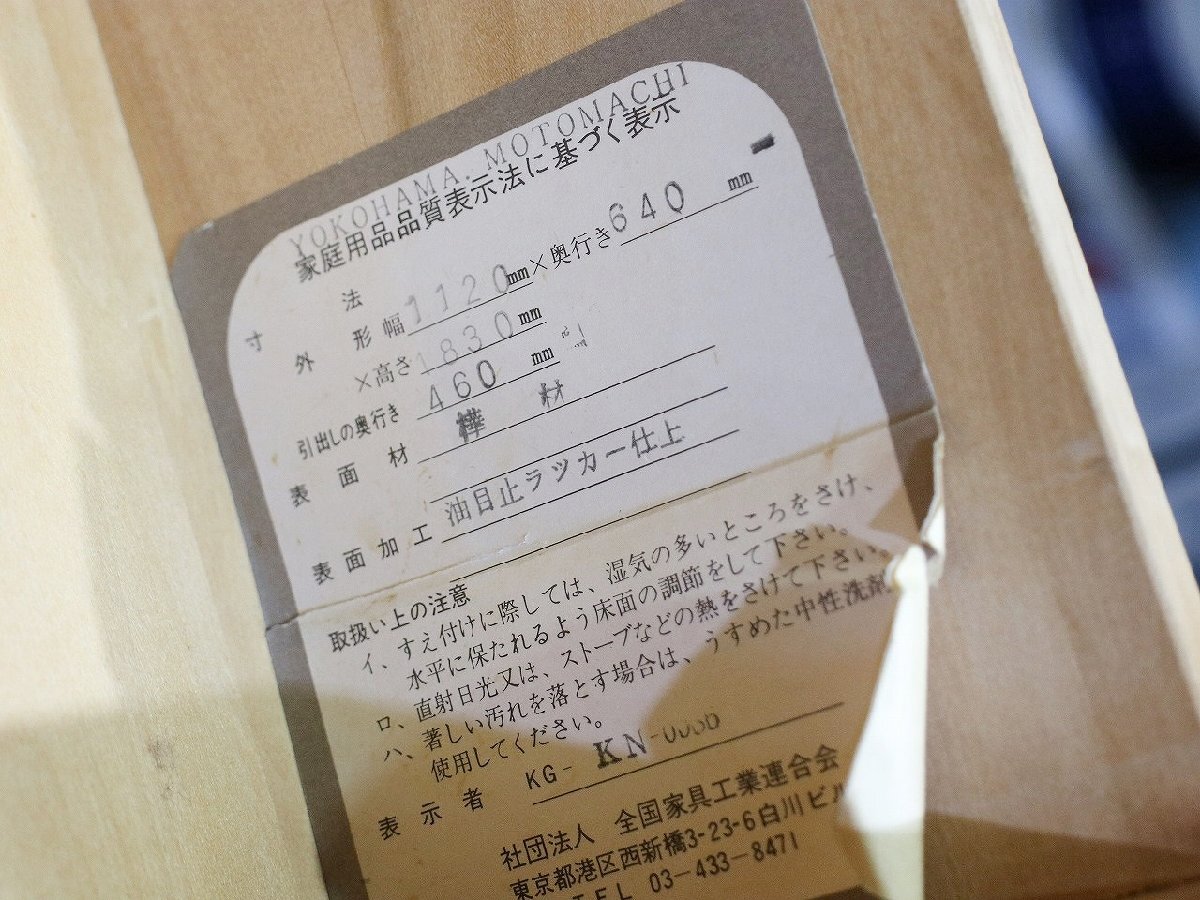 YOKOHAMA. MOTOMACHI
家庭用品品質表示法に基づく表示
寸法
外形幅 1120mm×奥行き640mm
×高さ1830mm
引出しの奥行き 460mm
表面材 樺材
表面加工 油目止ラツカー仕上
取扱い上の注意
イ、すえ付けに際しては、湿気の多いところをさけ、
水平に保たれるよう床面の調節をして下さい。
ロ、直射日光又は、ストーブなどの熱をさけて下さい。
ハ、著しい汚れを落とす場合は、うすめた中性洗剤
使用してください。
表示者 KG- KN-
社団法人 全国家具工業連合会
東京都港区西新橋3-23-6白川ビル
TEL 03-433-8471